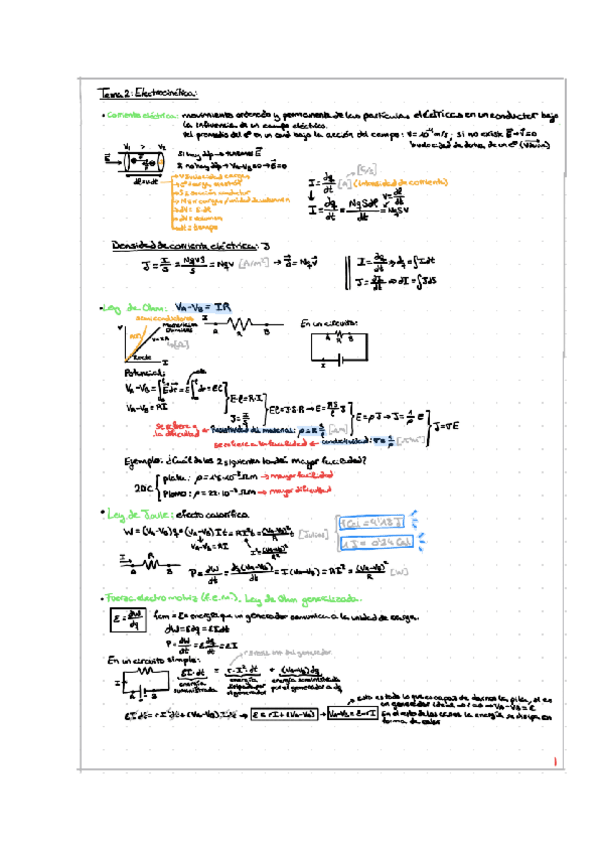 Tema 2: Electrocinética:
• Corriente eléctrica: movimiento ordenado y permanente de las partículas eléctricas en un conductor bajo
la influencia de un campo eléctrico.
Vel promedio del e⁻ en un cond bajo la acción del campo: v = 10⁻⁴ m/s; si no existe E → v = 0
V₁ > V₂
E
dℓ = v·dt
Si hay ddp →
Si no hay ddp → VA-VB = 0 → E = 0
I = dq/dt [A] (intensidad de corriente)
[C/s]
I = dq/dt = NqSdℓ/dt = NqSv
v = dℓ/dt
Densidad de corriente eléctrica: J
J = I/S = NqvS/S = Nqv [A/m²] → J = Nqv
I = dq/dt ⇒ dq = ∫Idt
J = dI/dS ⇒ dI = ∫JdS
• Ley de Ohm: VA-VB = IR
semiconductores
V
I
I
A R B
En un circuito:
A R B
I
Potencial:
VA-VB = RI
E·ℓ = R·I
J = I/S
Eℓ = J·S·R → E = RS/ℓ J
E = ρJ → J = 1/ρ E
J = σE
se refiere a la dificultad ← Resistividad del material: ρ = R S/ℓ [Ωm]
se refiere a la facilidad ← conductividad: σ = 1/ρ
Ejemplo: ¿Cuál de los 2 siguientes tendrá mayor facilidad?
20ºC
plata: ρ = 1'6·10⁻⁸ Ωm → mayor facilidad
Plomo: ρ = 22·10⁻⁸ Ωm → mayor dificultad
• Ley de Joule: efecto calorífico
W = (VA-VB)q = (VA-VB)It = RI²t = (VA-VB)²/R t [Julios]
VA-VB = RI
1 Cal = 4'18 J
1 J = 0'24 Cal
I
A R B
P = dW/dt = dq(VA-VB)/dt = I(VA-VB) = RI² = (VA-VB)²/R [W]
• Fuerza electromotriz (f.e.m), Ley de Ohm generalizada.
ε = dW/dq
fem = Es energía que un generador comunica a la unidad de carga.
dW = εdq = εIdt
P = dW/dt = ε dq/dt = εI
En un circuito simple:
εI·dt = r·I²·dt + (VA-VB)dq
energía suministrada
energía disipada por el generador
energía suministrada por el generador a dq
A B
εIdt = rI²dt + (VA-VB)Idt → ε = rI + (VA-VB) → VA-VB = ε-rI
esto es todo lo que es capaz de darnos la pila, si es
un generador ideal → r = 0 → VA-VB = ε
En el resto de los casos la energía se disipa en
forma de calor
1